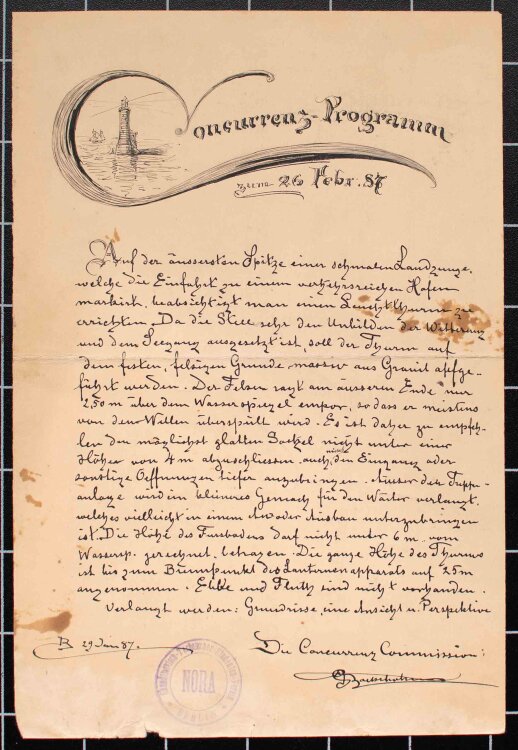 Concurrenz-Programm
zum 26 Febr. 87
Auf der äussersten Spitze einer schmalen Landzunge,
welche die Einfahrt zu einem verkehrsreichen Hafen
markirt, beabsichtigt man einen Leuchtthurm zu
errichten. Da die Stelle sehr den Unbilden der Witterung
und dem Seegang ausgesetzt ist, soll der Thurm auf
dem festen, felsigen Grunde massiv aus Granit aufge-
führt werden. Der Felsen ragt am äusseren Ende nur
2,50 m über dem Wasserspiegel empor, so dass er meistens
von den Wellen überspült wird. Es ist daher zu empfeh-
len den möglichst glatten Sockel nicht unter einer
Höhe von 4 m abzuschliessen, auch nicht den Eingang oder
sonstige Oeffnungen tiefer anzubringen. Ausser der Trepp-
anlage wird ein kleineres Gemach für den Wärter verlangt,
welches vielleicht in einem An oder Ausbau unterzubringen
ist. Die Höhe des Fussbodens darf nicht unter 6 m vom
Wassersp. gerechnet, betragen. Die ganze Höhe des Thurms
ist bis zum Brennpunkt des Lanternenapparats auf 25 m
anzunehmen. Ebbe und Fluth sind nicht vorhanden.
Verlangt werden: Grundrisse, eine Ansicht u. Perspektive
B 29 Jan 87.
Die Concurrenz Commission:
NORA
BERLIN